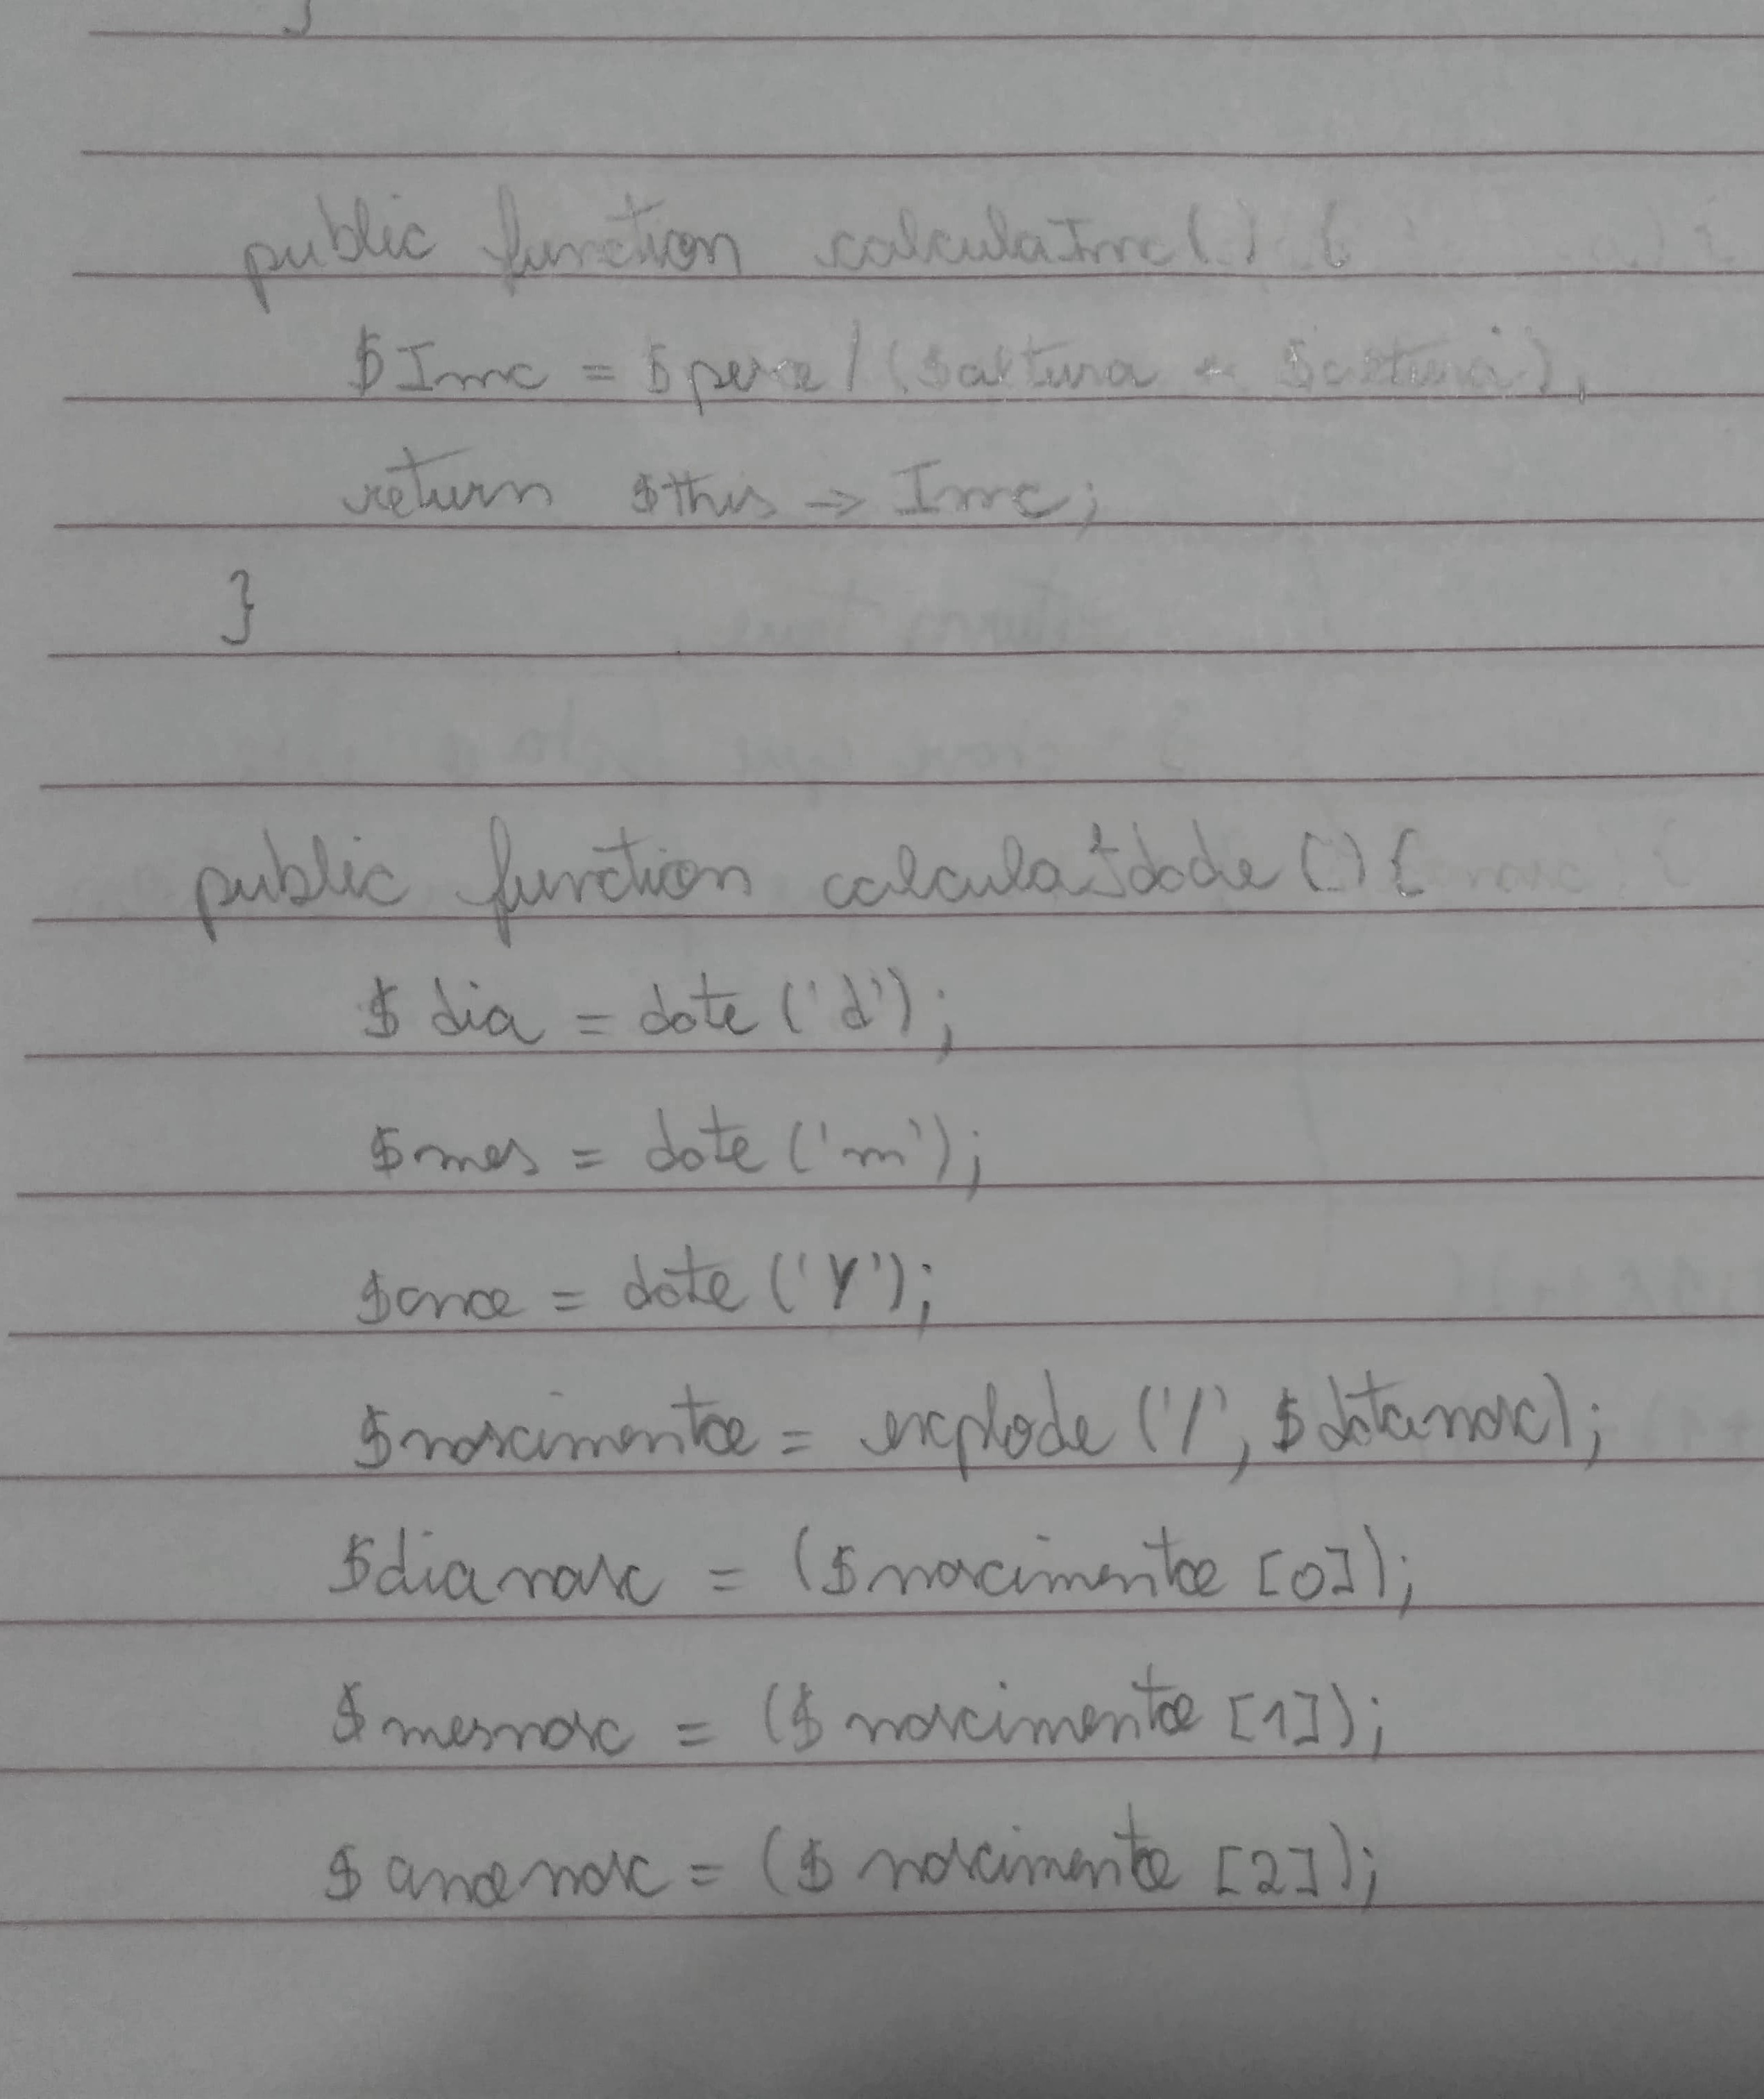 }
public function calculaImc() {
$Imc = $peso / ($altura * $altura);
return $this -> Imc;
}
public function calculaIdade () {
$dia = date ('d');
$mes = date ('m');
$ano = date ('Y');
$nascimento = explode ('/', $datanasc);
$dianasc = ($nascimento [0]);
$mesnasc = ($nascimento [1]);
$anonasc = ($nascimento [2]);